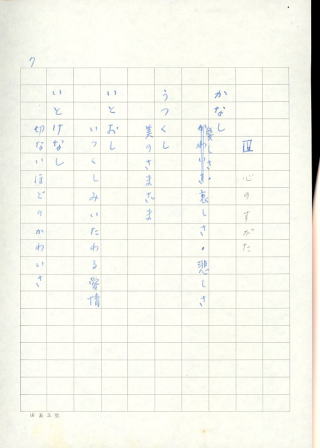 7
Ⅲ 心のすがた
かなし
愛しさ・哀しさ・悲しさ
うつくし
美のさまざま
いとおし
いつくしみいたわる愛情
いとけなし
切ないほどのかわいさ